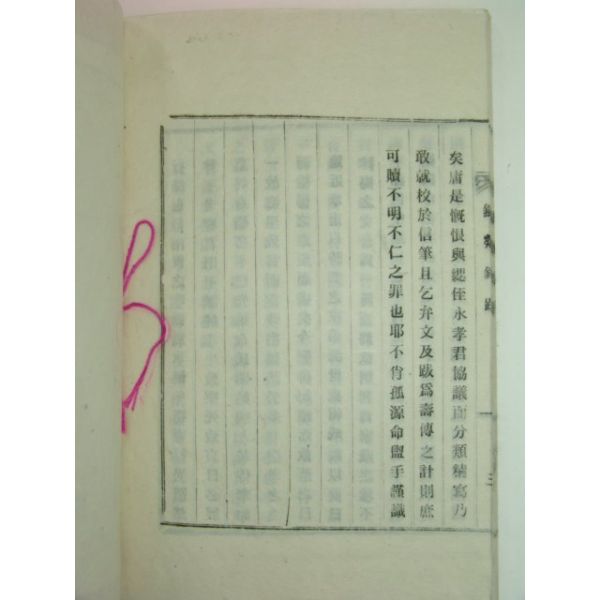 矣庸是慨恨與從侄永孝君協議而分類精寫乃
敢就校於信筆且乞弁文及跋爲壽傳之計則庶
可贖不明不仁之罪也耶不肖孤源命盥手謹識
三